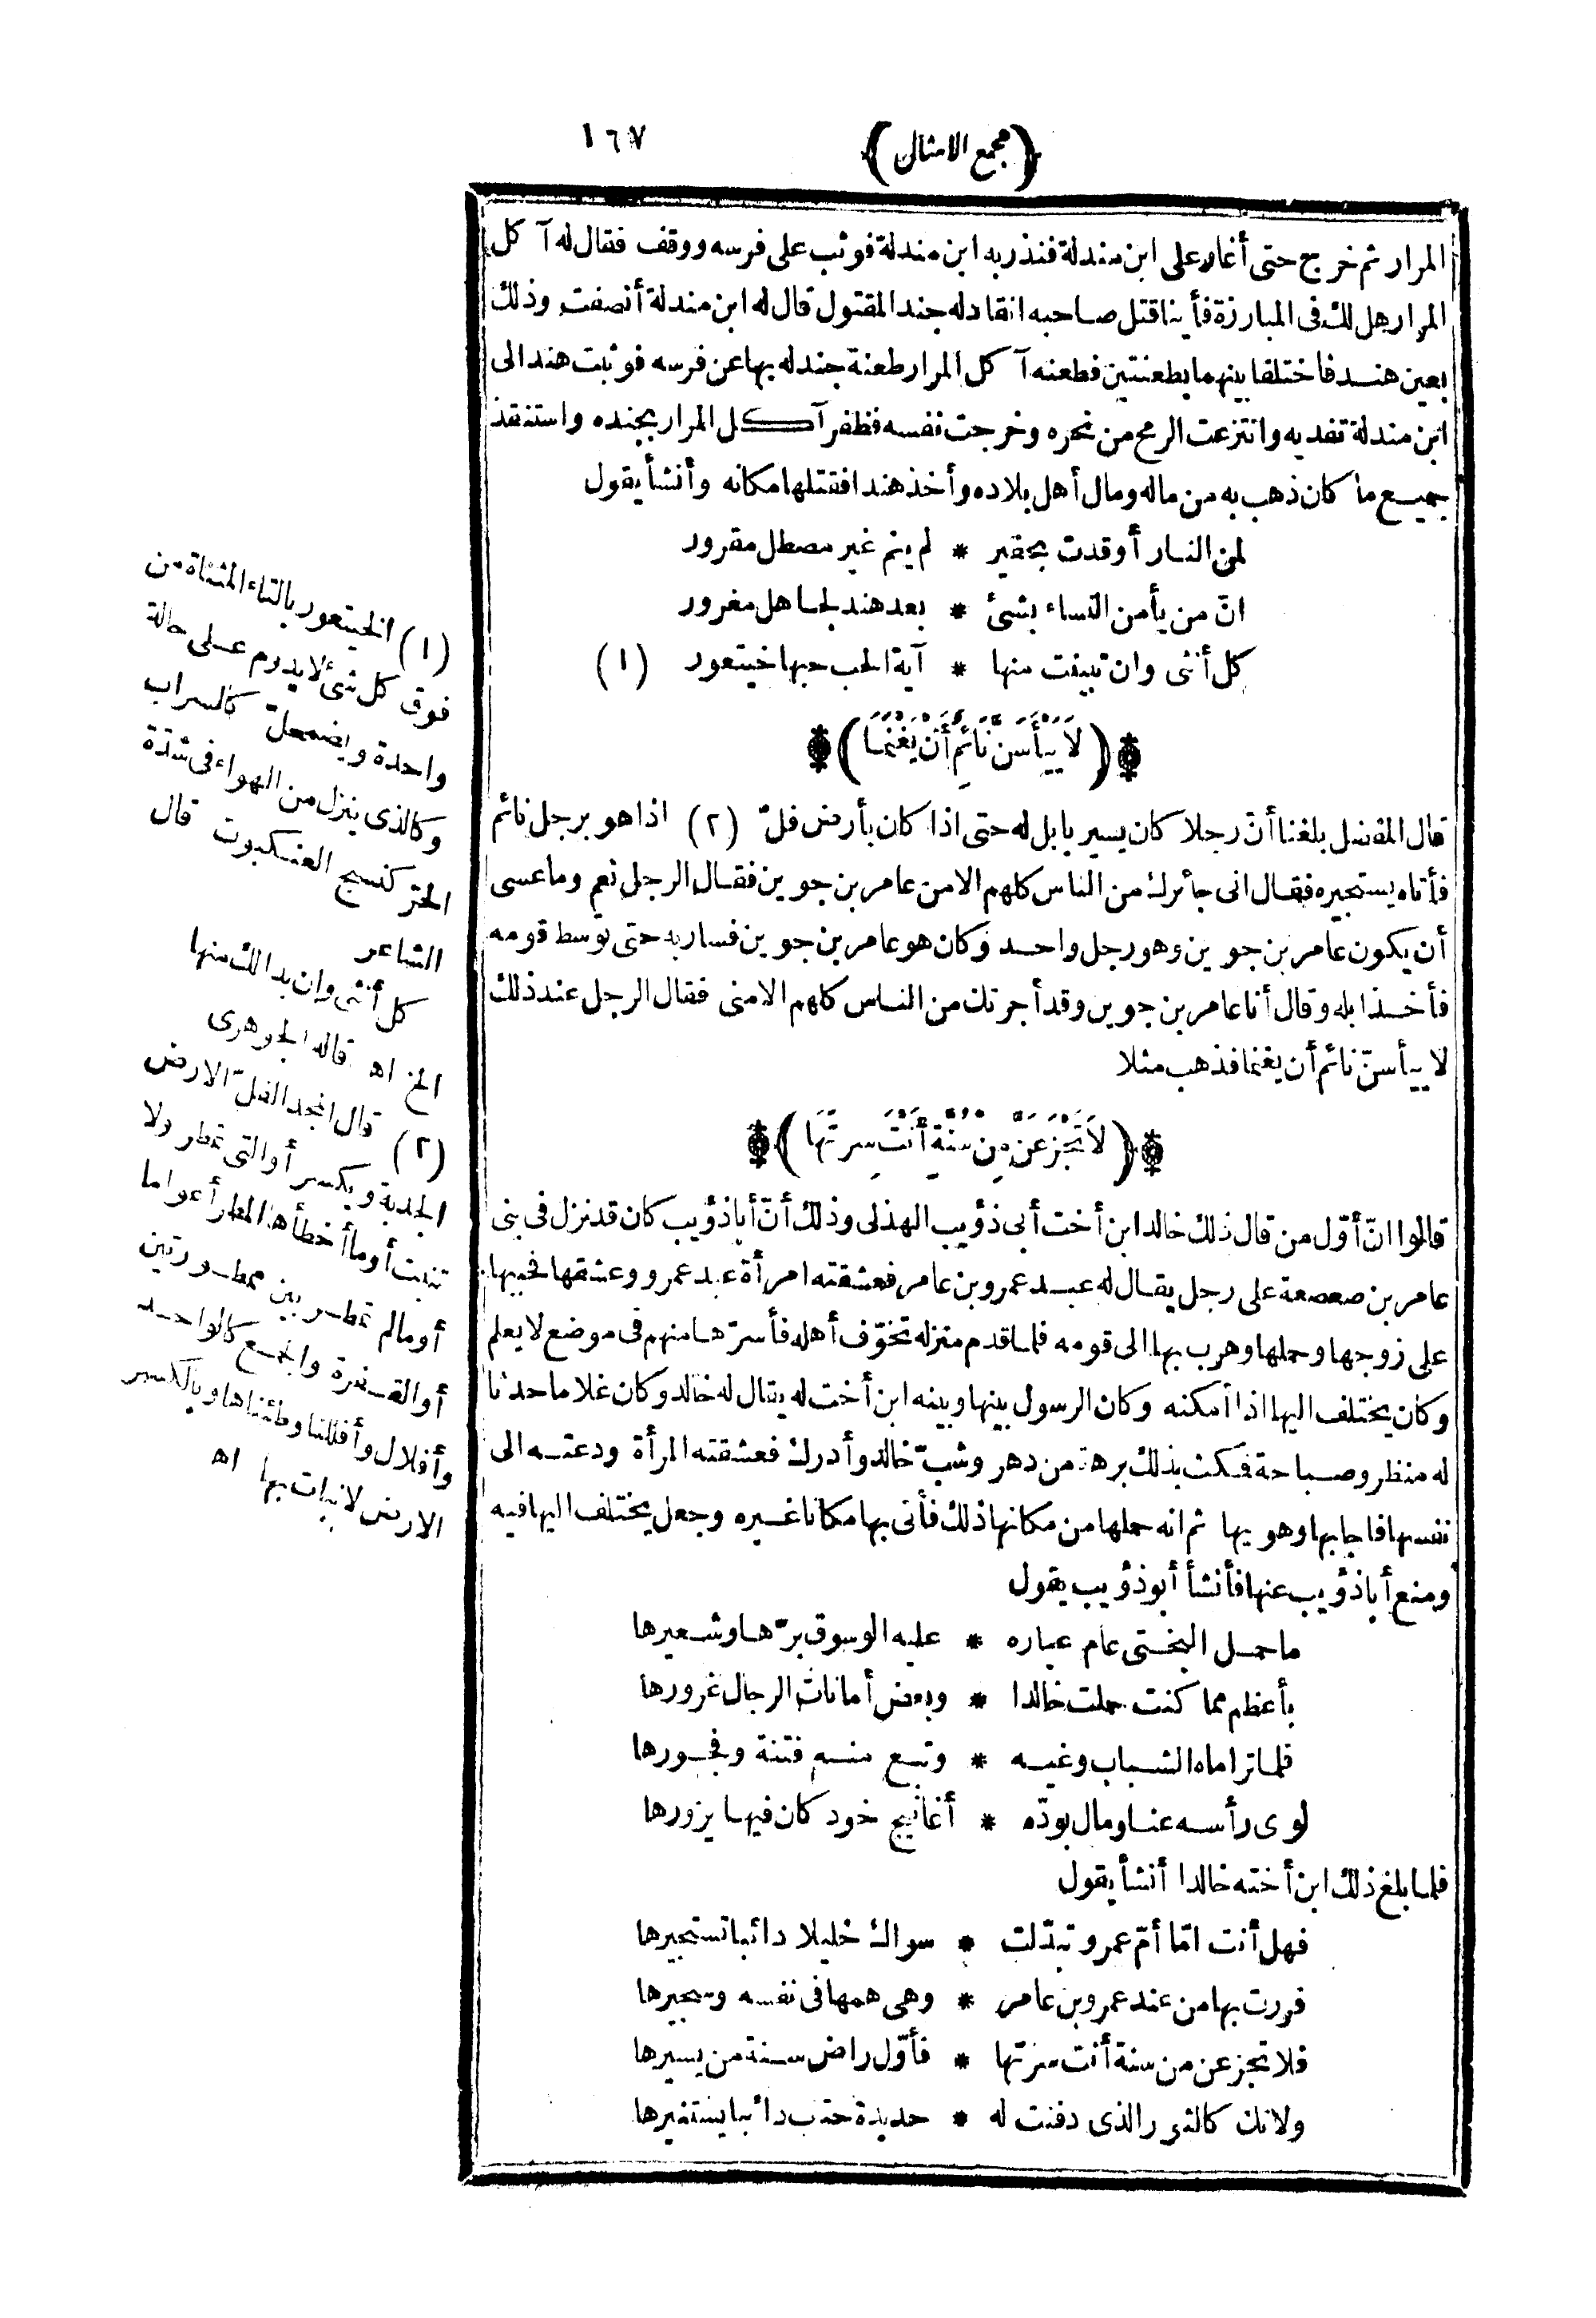 (مجمع الامثال)
١٦٧
المرار ثم خرج حتى أغار على ابن مندلة فنذر به ابن مندلة فوثب على فرسه ووقف فقال له آكل
المرار هل لك فى المبارزة فأينا قتل صاحبه انقاد له جند المقتول قال له ابن مندلة أنصفت وذلك
بعين هند فاختلفا بينهما بطعنتين فطعنه آكل المرار طعنة جندله بها عن فرسه فوثبت هند الى
ابن مندلة تفديه وانتزعت الرمح من نحره وخرجت نفسه فظفر آكل المرار بجنده واستنقذ
جميع ما كان ذهب به من ماله ومال أهل بلاده وأخذ هندا فقتلها مكانه وأنشأ يقول
لمن النار أوقدت بحفير * لم ينم غير مصطل مقرور
انّ من يأمن النساء بشئ * بعد هند لجاهل مغرور
كل أنثى وان تبينت منها * آية الحب حبها خيتعور (١)
(لَا يَيْأَسَنَّ نَائِمٌ أَنْ يَغْنَمَا)
قال المفضل بلغنا أنّ رجلا كان يسير بابل له حتى اذا كان بأرض فلّ (٢) اذا هو برجل نائم
فأتاه يستجيره فقال انى جائرك من الناس كلهم الا من عامر بن جوين فقال الرجل نعم وما عسى
أن يكون عامر بن جوين وهو رجل واحد وكان هو عامر بن جوين فسار به حتى توسط قومه
فأخذ ابله وقال أنا عامر بن جوين وقد أجرتك من الناس كلهم الا منى فقال الرجل عند ذلك
لا ييأسنّ نائم أن يغنما فذهب مثلا
(لَا تَجْزَعَنَّ مِنْ سُنَّةٍ أَنْتَ سِرْتَهَا)
قالوا انّ أوّل من قال ذلك خالد ابن أخت أبى ذؤيب الهذلى وذلك أنّ أباذؤيب كان قد نزل فى بنى
عامر بن صعصعة على رجل يقال له عبد عمرو بن عامر فعشقته امرأة عبد عمرو وعشقها فخببها
على زوجها وحملها وهرب بها الى قومه فلما قدم منزله تخوّف أهله فأسرّها منهم فى موضع لا يعلم
وكان يختلف اليها اذا أمكنه وكان الرسول بينها وبينه ابن أخت له يقال له خالد وكان غلاما حدثا
له منظر وصباحة فمكث بذلك برهة من دهر وشبّ خالد وأدرك فعشقته المرأة ودعته الى
نفسها فاجابها وهويها ثم انه حملها من مكانها ذلك فأتى بها مكانا غيره وجعل يختلف اليها فيه
ومنع أباذؤيب عنها فأنشأ أبوذؤيب يقول
ما حمل البختى عام عياره * عليه الوسوق برّها وشعيرها
بأعظم مما كنت حملت خالدا * وبعض أمانات الرجال غرورها
فلما تراماه الشباب وغيه * وتبع منه فتنة وفجورها
لوى رأسه عنا ومال بودّه * أغانيج خود كان فيها يزورها
فلما بلغ ذلك ابن أخته خالدا أنشأ يقول
فهل أنت امّا أمّ عمرو تبدّلت * سواك خليلا دائبا تستجيرها
فررت بها من عند عمرو بن عامر * وهى همها فى نفسه وسجيرها
فلا تجزعن من سنة أنت سرتها * فأوّل راض سنة من يسيرها
ولا تك كالثور الذى دفنت له * حديدة حتف دائبا يستثيرها
(١) الخيتعور بالتاء المثناة من
فوق كل شئ لا يدوم على حالة
واحدة ويضمحلّ كالسراب
وكالذى ينزل من الهواء فى شدّة
الحرّ كنسج العنكبوت قال
الشاعر
كل أنثى وان بدا لك منها
الخ اه قاله الجوهرى
(٢) قال المجد الفلّ الارض
الجدبة ويكسر أو التى تمطر ولا
تنبت أو ما أخطأها المطر أعواما
أو مالم تمطر بين ممطورتين
أو القفرة والجمع كالواحد
وأفلال وأفللنا وطئناها وبالكسر
الارض لا نبات بها اه